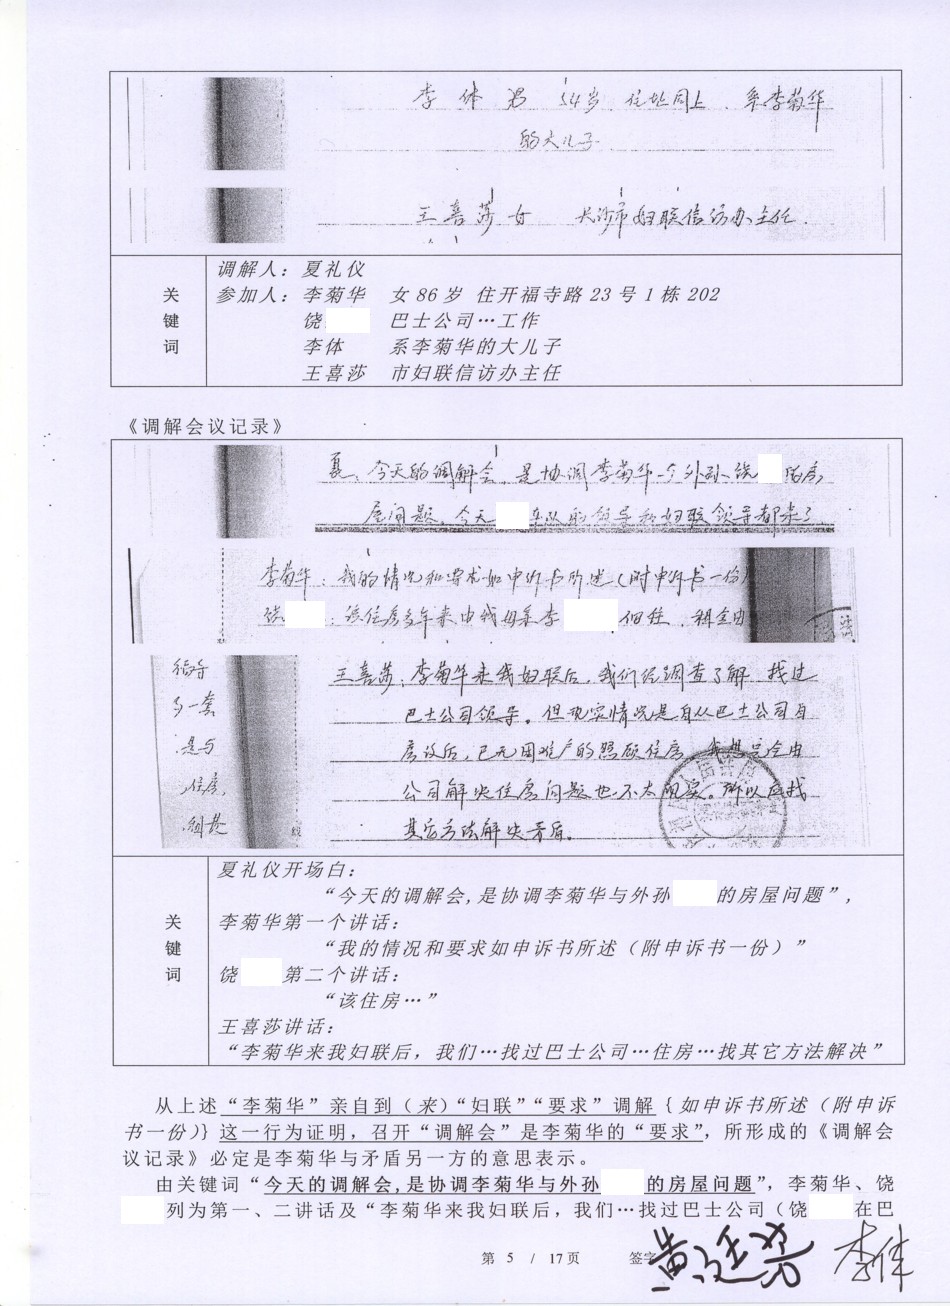 李体 男 54岁 住址同上 系李菊华
的大儿子
王喜莎 女 长沙市妇联信访办主任.
关键词
调解人：夏礼仪
参加人：李菊华 女86岁 住开福寺路23号1栋202
饶 巴士公司…工作
李体 系李菊华的大儿子
王喜莎 市妇联信访办主任
《调解会议记录》
夏：今天的调解会，是协调李菊华与外孙饶 的房
屋问题，今天 车队的领导和妇联领导都来了
李菊华：我的情况和要求如申诉书所述（附申诉书一份）
饶 ：该住房多年来由我母亲李 居住，租金由
王喜莎：李菊华来我妇联后，我们经调查了解，找过
巴士公司领导。但现实情况是自从巴士公司自
房改后，已无困难户的照顾住房，我想完全由
公司解决住房问题也不太现实。所以应找
其它方法解决矛盾。
多一套
是与
住房，
关键词
夏礼仪开场白：
“今天的调解会,是协调李菊华与外孙 的房屋问题”，
李菊华第一个讲话：
“我的情况和要求如申诉书所述（附申诉书一份）”
饶 第二个讲话：
“该住房…”
王喜莎讲话：
“李菊华来我妇联后，我们…找过巴士公司…住房…找其它方法解决”
从上述“李菊华”亲自到（来）“妇联”“要求”调解{如申诉书所述（附申诉
书一份）}这一行为证明，召开“调解会”是李菊华的“要求”，所形成的《调解会
议记录》必定是李菊华与矛盾另一方的意思表示。
由关键词“今天的调解会,是协调李菊华与外孙 的房屋问题”，李菊华、饶
列为第一、二讲话及“李菊华来我妇联后，我们…找过巴士公司（饶 在巴
第 5 / 17页 签字 李体